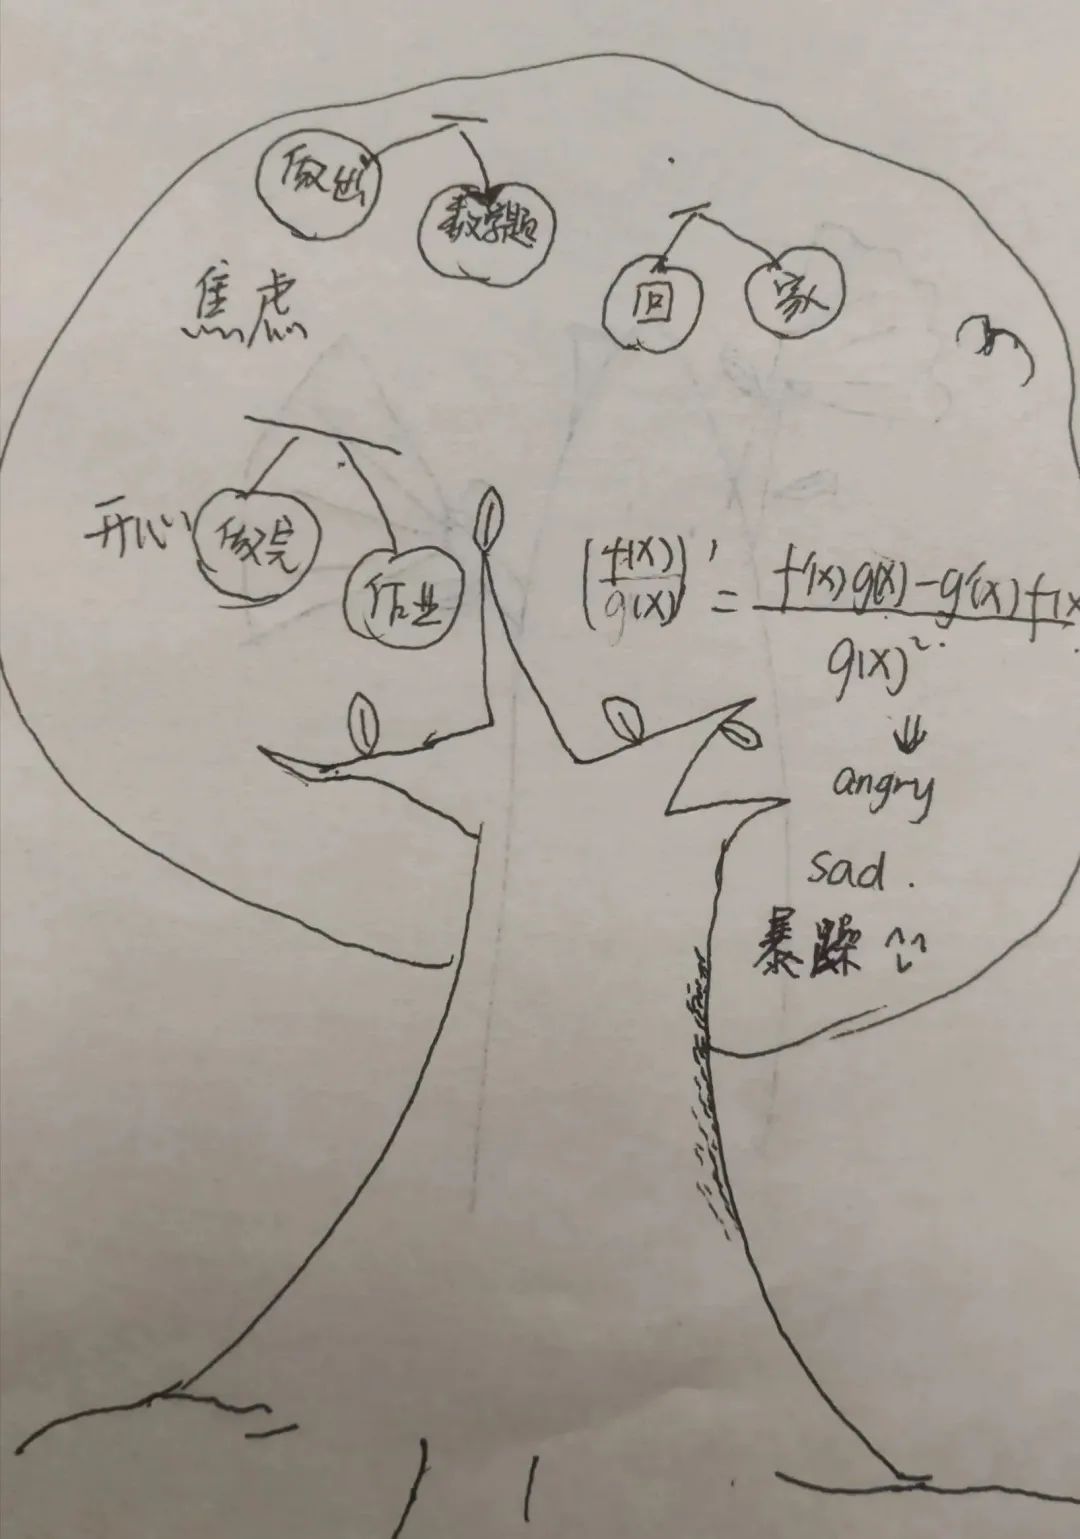 做出
数学题
回家
焦虑
开心
做完
作业
(f(x)/g(x))' = f'(x)g(x)-g'(x)f(x)/g(x)²
⇓
angry
sad.
暴躁